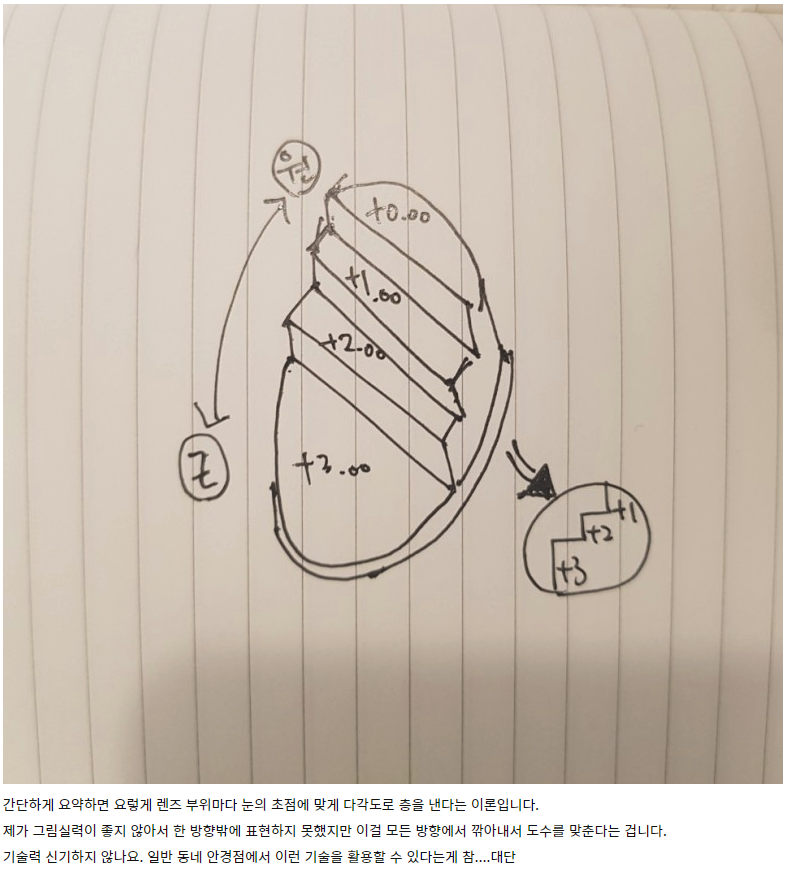 원
+0.00
+1.00
+2.00
+3.00
근
+1
+2
+3
간단하게 요약하면 요렇게 렌즈 부위마다 눈의 초점에 맞게 다각도로 층을 낸다는 이론입니다.
제가 그림실력이 좋지 않아서 한 방향밖에 표현하지 못했지만 이걸 모든 방향에서 깎아내서 도수를 맞춘다는 겁니다.
기술력 신기하지 않나요. 일반 동네 안경점에서 이런 기술을 활용할 수 있다는게 참....대단